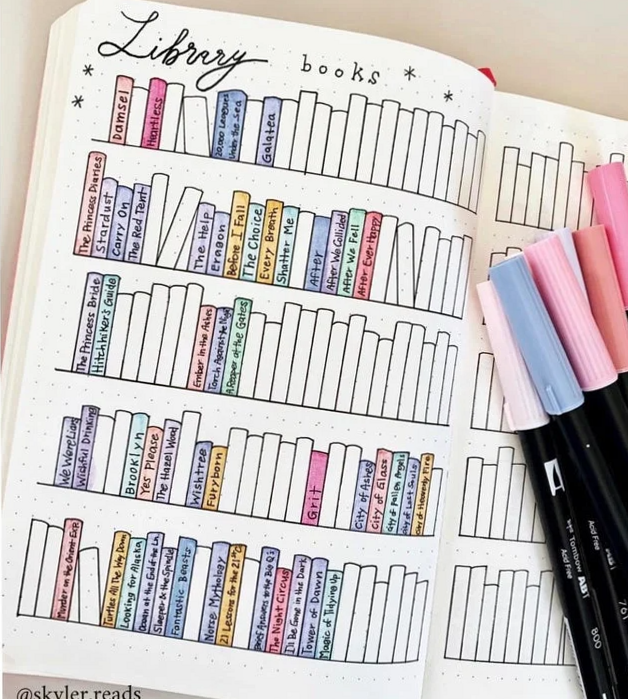 Library
books
Damsel
Heartless
20,000 Leagues
Under the Sea
Galatea
The Princess Diaries
Stardust
Carry On
The Red Tent
The Help
Eragon
Before I Fall
The Choice
Every Breath
Shatter Me
After
After We Collided
After We Fell
After Ever Happy
The Princess Bride
Hitchhiker's Guide
Ember in the Ashes
Torch Against the
A Reaper at the Gates
We Were Liars
Wishful Drinking
Brooklyn
Yes Please
The Hazel Wood
Wishtree
Furyborn
Grit
City of Ashes
City of Glass
City of Fallen Angels
City of Lost Souls
City of Heavenly Fire
Murder on the Orient Exp.
Turtles All the Way Down
Looking for Alaska
Ocean at the End of the Ln
Sleeper & the Spindle
Fantastic Beasts
Norse Mythology
21 Lessons for the 21st C
Brief Answers to the Big Qs
The Night Circus
I'll Be Gone in the Dark
Tower of Dawn
Magic of Tidying Up
Tombow ABT
Acid Free
Acid Free
800
761
@skyler.reads